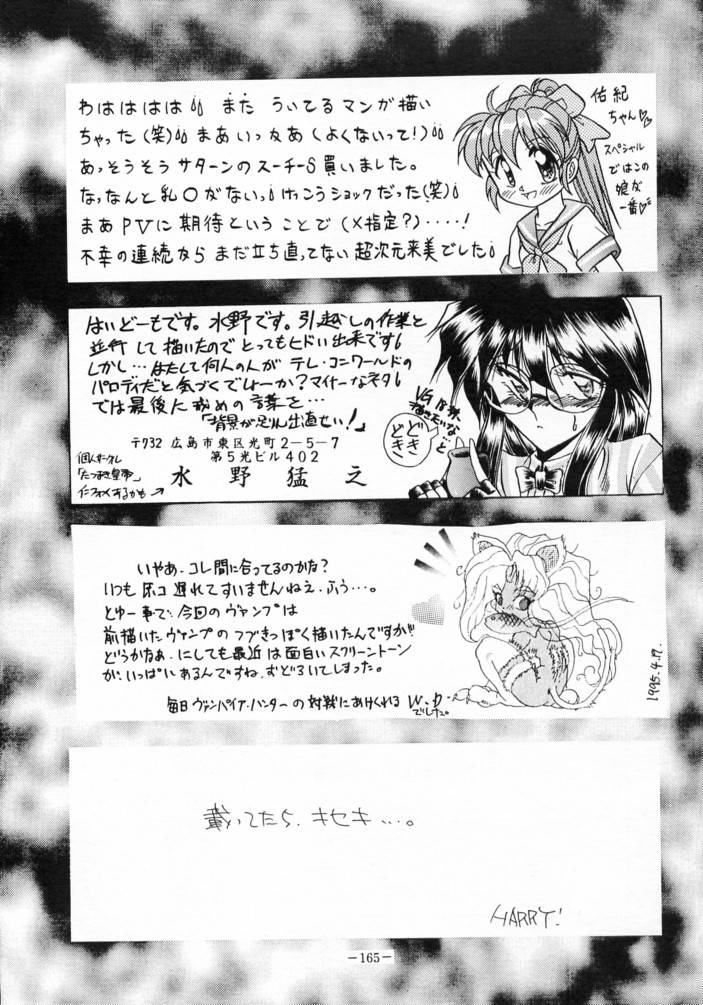 わはははは¡¡ また ういてるマンガ描い
ちゃった(笑)¡¡ まあいっかあ(よくないって!)¡¡
あっそうそう サターンのスーチーS買いました。
なっなんと乳○がないっ¡けっこうショックだった(笑)¡
まあPVに期待ということで(X指定?)‥‥!
不幸の連続から まだ立ち直ってない 超次元来美でした¡
佑紀
ちゃん♡
スペシャル
ではこの
娘が
一番♡
はいどーもです。水野です。引越しの作業と
並行して描いたのでとってもヒドい出来です
しかし…はたして何人の人が テレ・コンワールドの
パロディだと気づくでしょーか?マイナーなネタ
では最後に戒めの言葉を…
「背景が足りん出直せい!」
〒732 広島市東区光町2-5-7
第5光ビル402
水野猛之
個人サークル
「たつまき皇帝」
インフォメするかも→
VG18禁
描きたいな…と
どき
どき
いやあ、コレ間に合ってるのかな?
いつも 遅れてすいませんねえ、ふう…。
とゆー事で、今回のヴァンプは
前描いたヴァンプのつづきっぽく描いたんですが!!
どうかなあ、にしても最近は面白いスクリーントーン
が、いっぱいあるんですね、おどろいてしまった。
毎日ヴァンパイア・ハンターの対戦にあけくれる W・D
でした。
1995.4.17.
載ってたら、キセキ…。
HARRY!
-165-